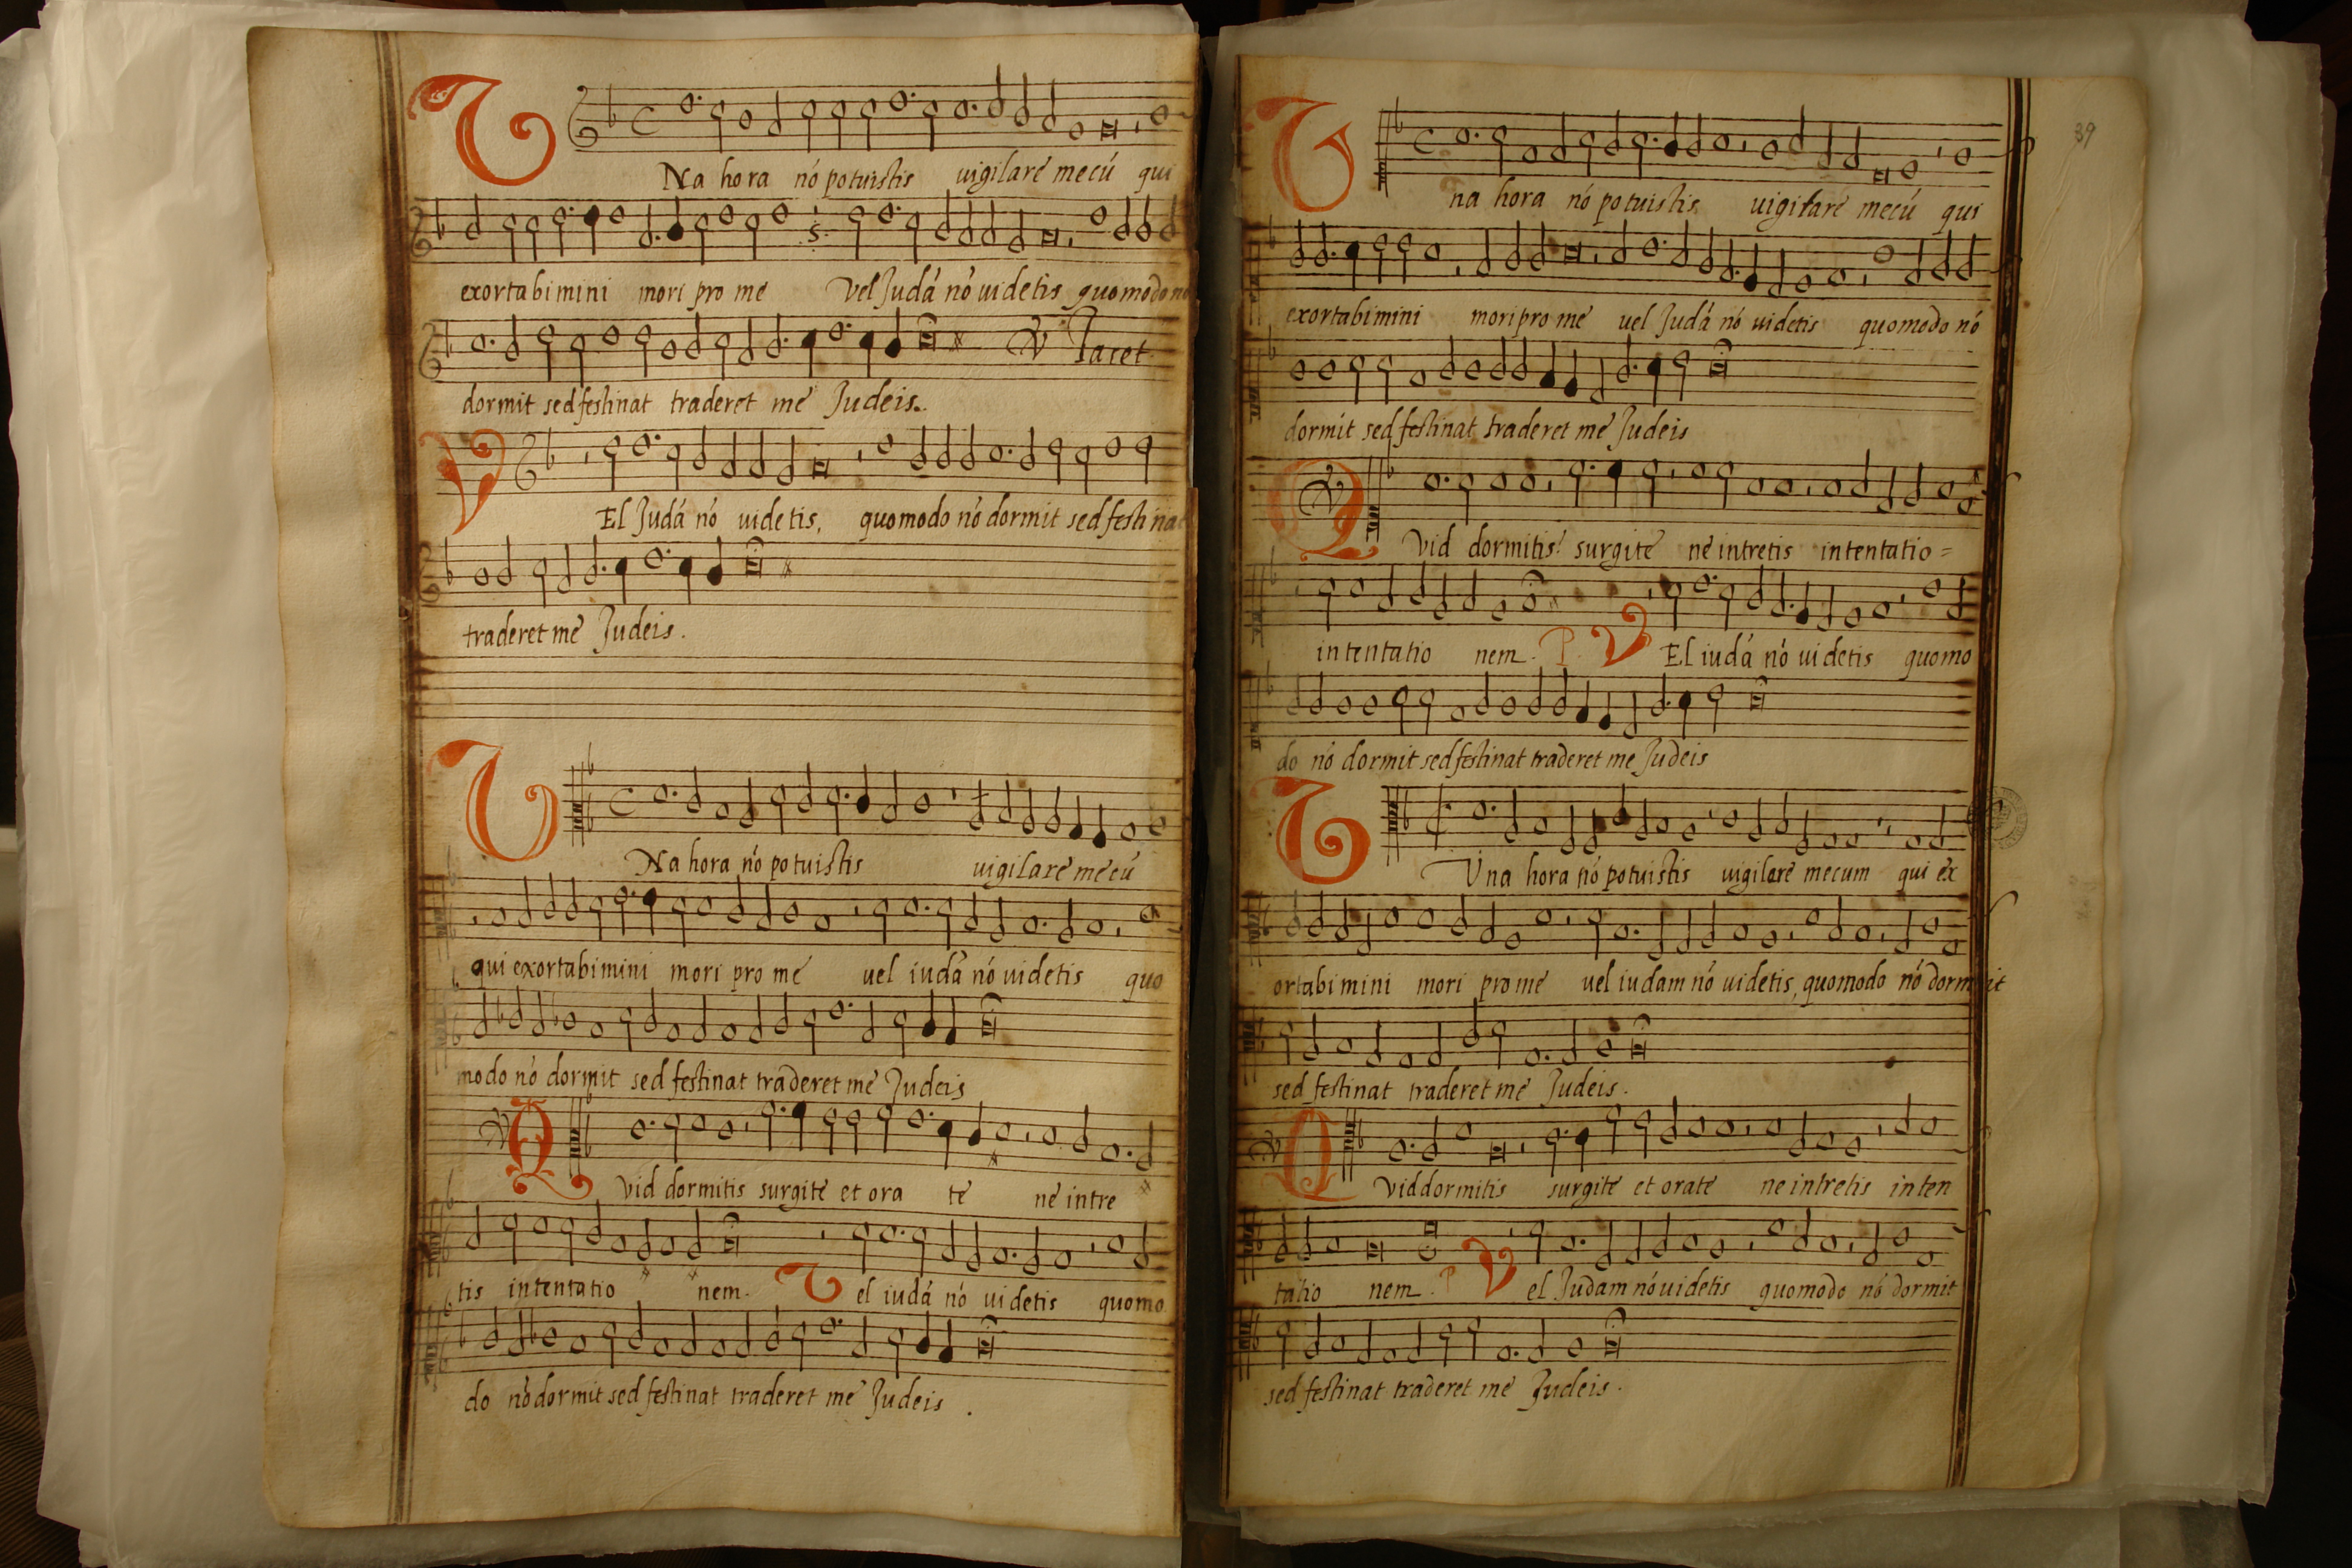 UNa hora nó potuistis uigilaré mecú qui
exortabimini mori pro me Vel Judá nó uidetis quomodo nó
℣ Jacet
dormit sed festinat traderet me Judeis.
VEl Judá nó uidetis, quomodo nó dormit sed festinat
traderet me Judeis.
UNa hora nó potuistis uigilaré mecú
qui exortabimini mori pro me uel iudá nó uidetis quo
modo nó dormit sed festinat traderet me Judeis
℣ Qvid dormitis surgité et ora te né intre
tis intentatio nem. Vel iudá nó uidetis quomo
do nó dormit sed festinat traderet me Judeis.
39
Una hora nó potuistis uigilaré mecú qui
exortabimini mori pro me uel Judá nó uidetis quomodo nó
dormit sed festinat traderet me Judeis
℣ Qvid dormitis? surgité né intretis intentatio=
intentatio nem. P. VEl iudá nó uidetis quomo
do nó dormit sed festinat traderet me Judeis
Una hora nó potuistis uigilaré mecum qui ex
ortabimini mori pro me uel iudam nó uidetis, quomodo nó dormit
sed festinat traderet me Judeis.
℣ Qvid dormitis surgité et orate ne intretis inten
tatio nem. P VEl Judam nó uidetis quomodo nó dormit
sed festinat traderet me Judeis.